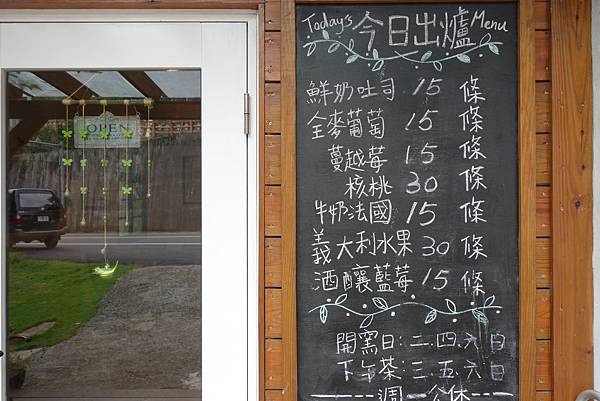 Today's 今日出爐 Menu
鮮奶吐司 15 條
全麥葡萄 15 條
蔓越莓 15 條
核桃 30 條
牛奶法國 15 條
義大利水果 30 條
酒釀藍莓 15 條
開窯日:二.四.六.日
下午茶:三.五.六.日
週一公休
OPEN